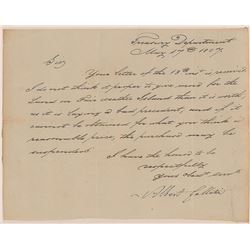 Treasury Department
May 17th 1807.
Sir,
Your letter of the 13th inst is received
I do not think it proper to give more for the
Land on Fair weather Island than it is worth,
as it is laying a bad precedent, and if it
cannot be obtained for what you think a
reasonable price, the purchase may be
suspended.
I have the honor to be
respectfully
Your obedt. servt.
Albert Gallatin